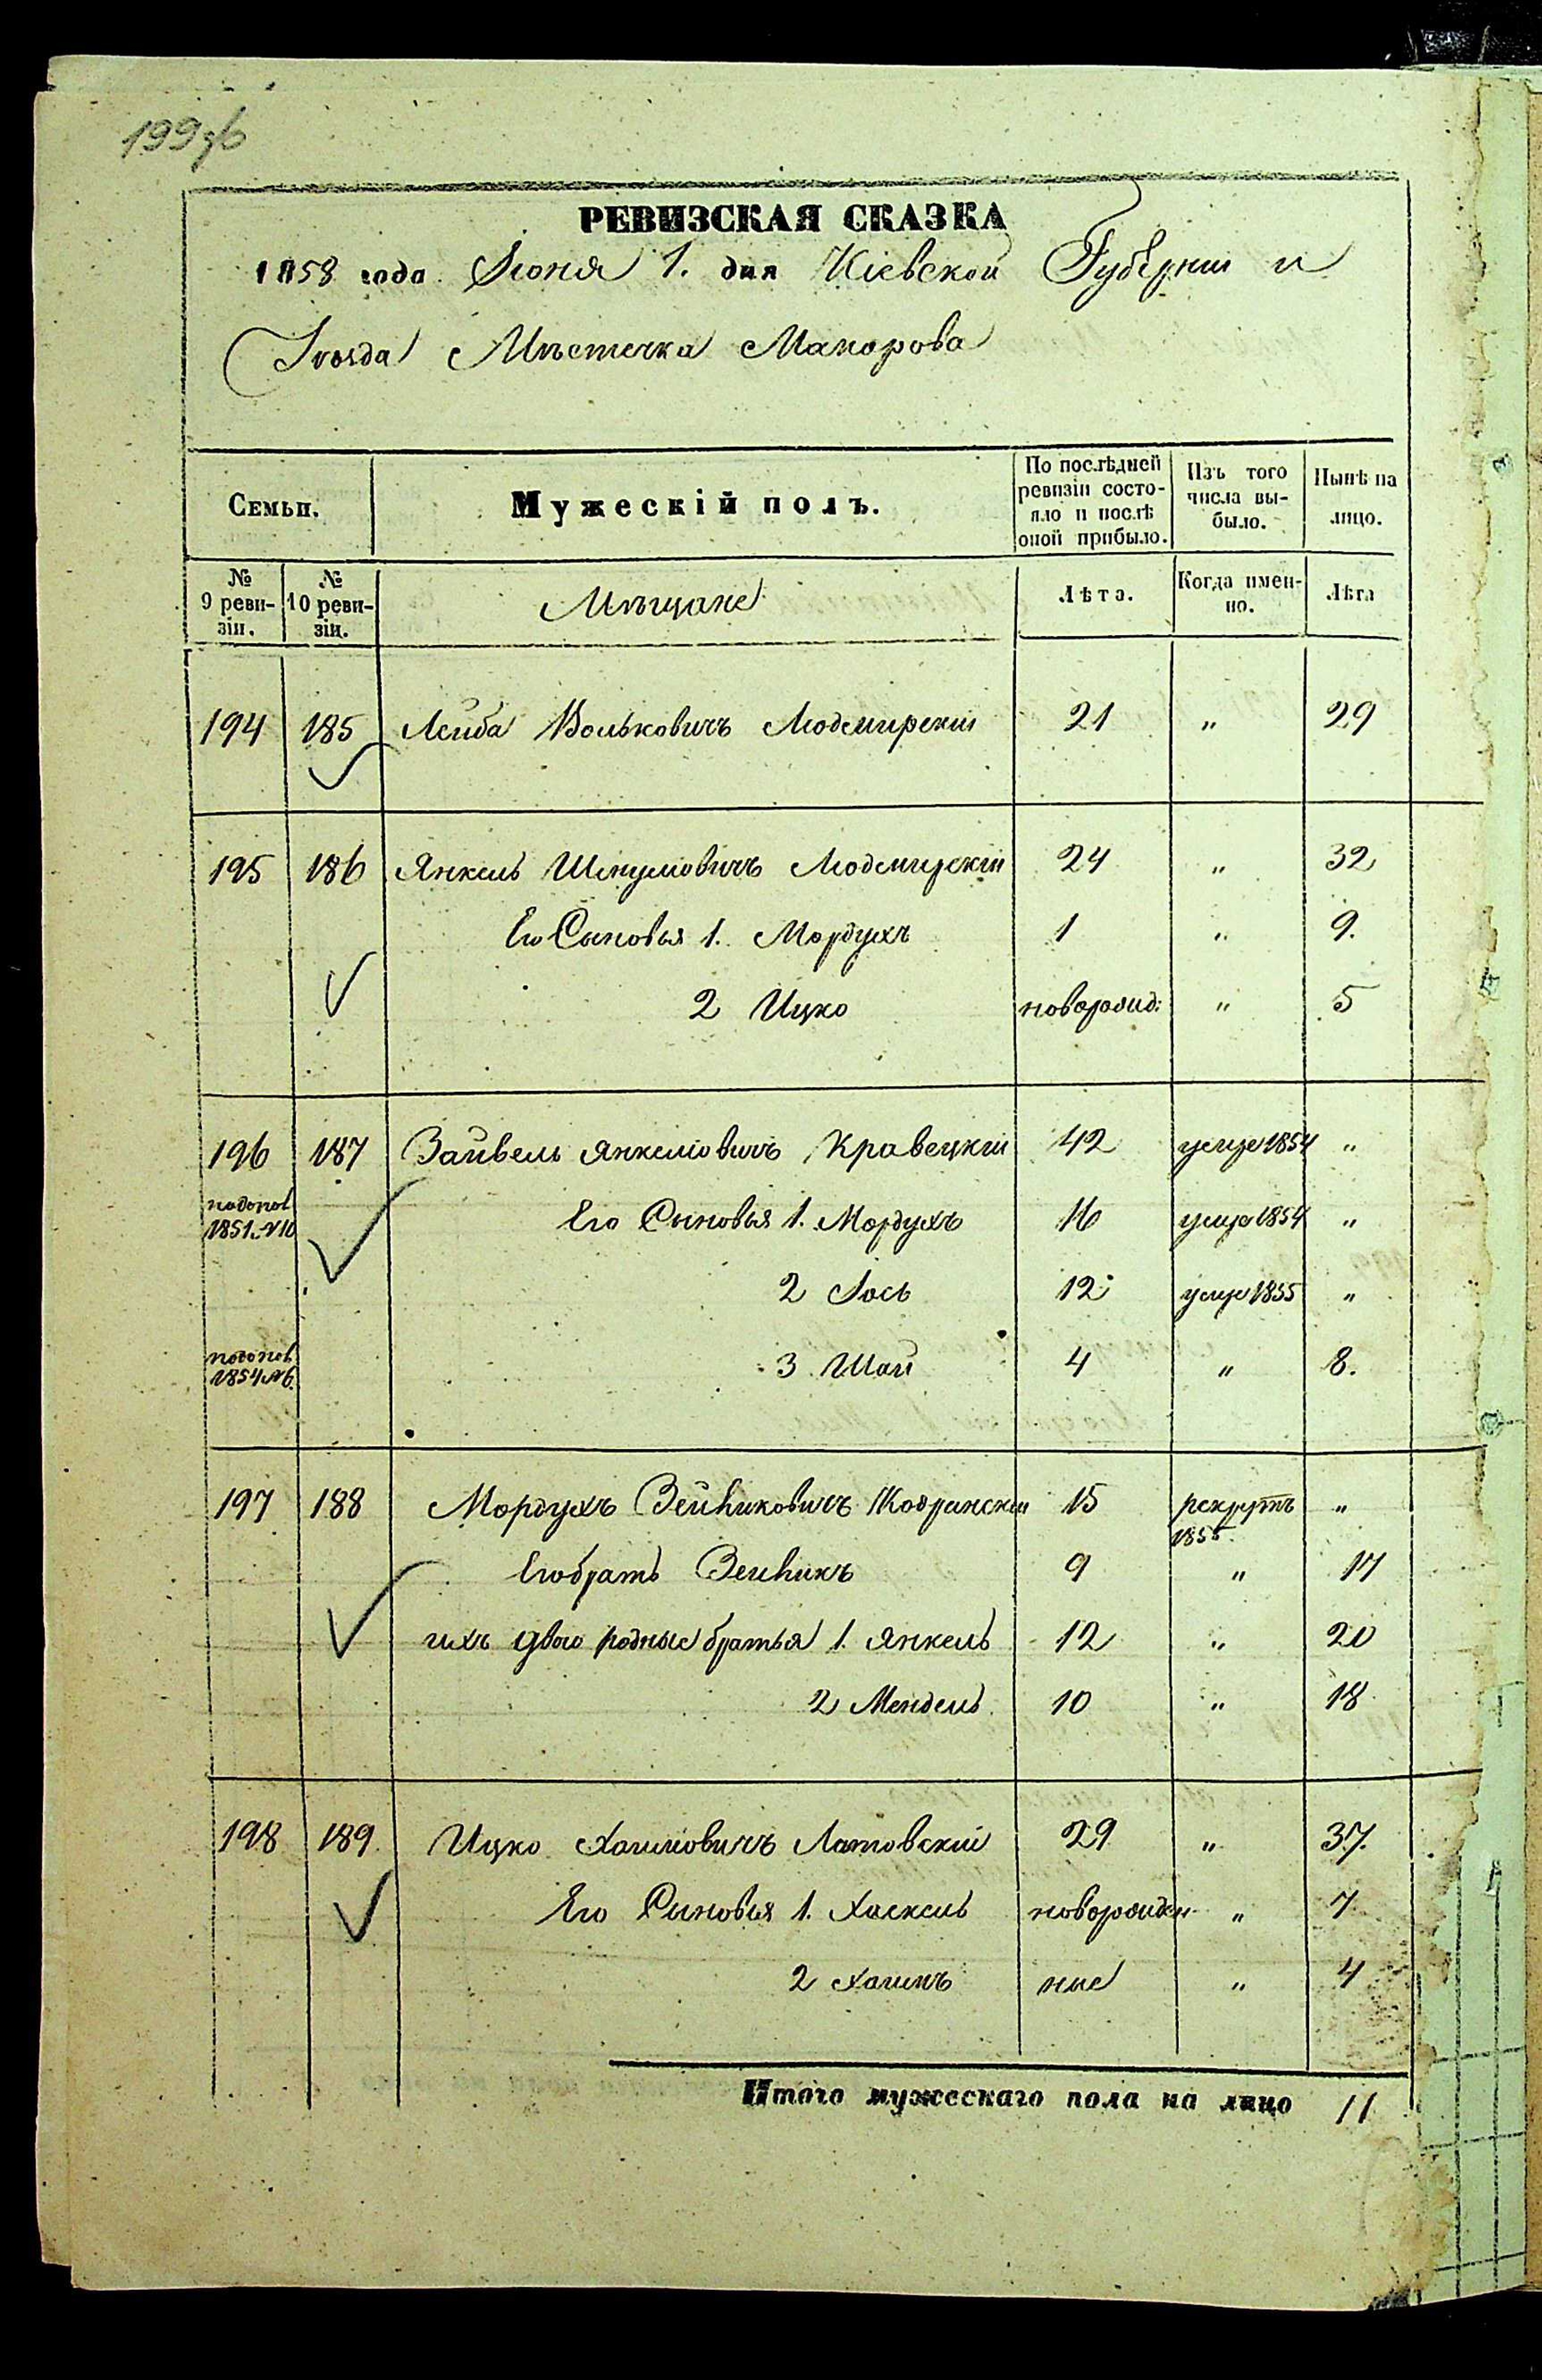 199об
РЕВИЗСКАЯ СКАЗКА
1858 года Іюня 1. дня Кіевской Губерніи и
Уѣзда Мѣстечка Макарова
Семьи.
Мужескій полъ.
По послѣдней ревизіи состояло и послѣ оной прибыло.
Изъ того числа выбыло.
Нынѣ на лицо.
№ 9 ревизіи.
№ 10 ревизіи.
Мѣщане
Лѣта.
Когда именно.
Лѣта
194 185 Лейба Вольковичъ Людмирскій 21 " 29
195 186 Янкель Шмулiовичъ Людмирскій 24 " 32
Его Сыновья 1. Мордухъ 1 " 9.
2 Ицко новорожд: " 5
196 187 Зайвель Янкеліовичъ Кравецкій 42 умер 1854 "
по допол
1851 №10
Его Сыновья 1. Мордухъ 16 умер 1854 "
2 Іось 12 умер 1855 "
по допол
1854 №6.
3 Шаи 4 " 8.
197 188 Мордухъ Зейликовичъ Кодрянскій 15 рекрутъ 1855 "
Его братъ Зейликъ 9 " 17
ихъ двою родные братья 1. Янкель 12 " 20
2 Мендель 10 " 18
198 189 Ицко Хаимовичъ Латовскій 29 " 37.
Его Сыновья 1. Хаскель новорожден " 7
2 Хаимъ ные " 4
Итого мужескаго пола на лицо 11